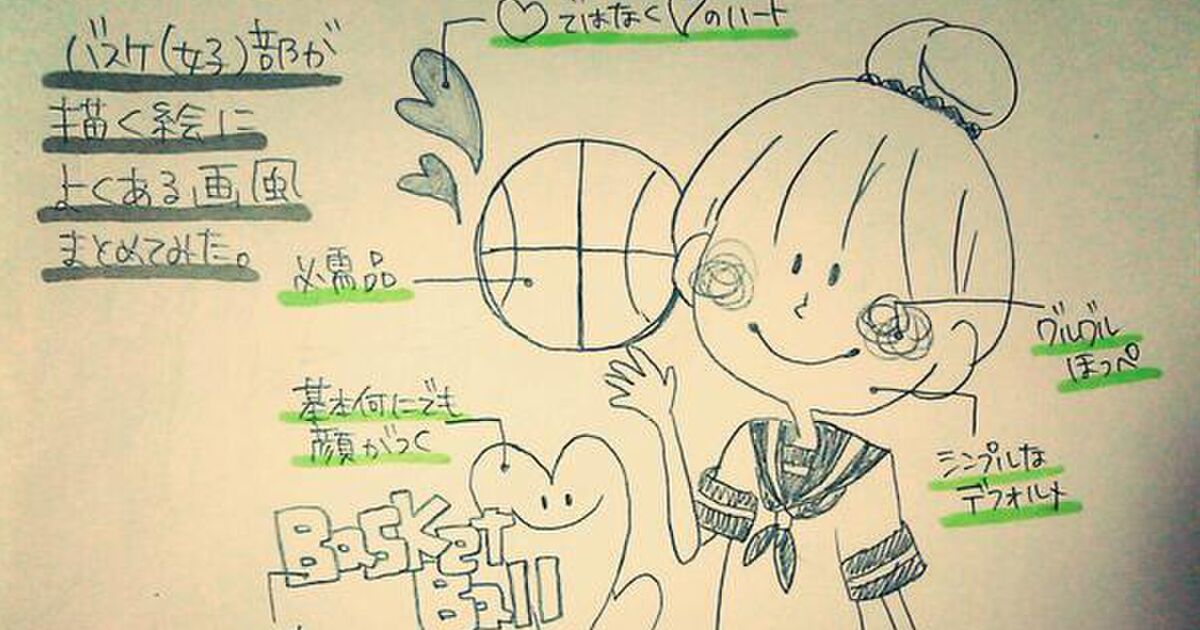 バスケ(女子)部が
描く絵に
よくある画風
まとめてみた。
♡ではなく のハート
必需品
グルグル
ほっぺ
基本何にでも
顔がつく
シンプルな
デフォルメ
Basket
Ball